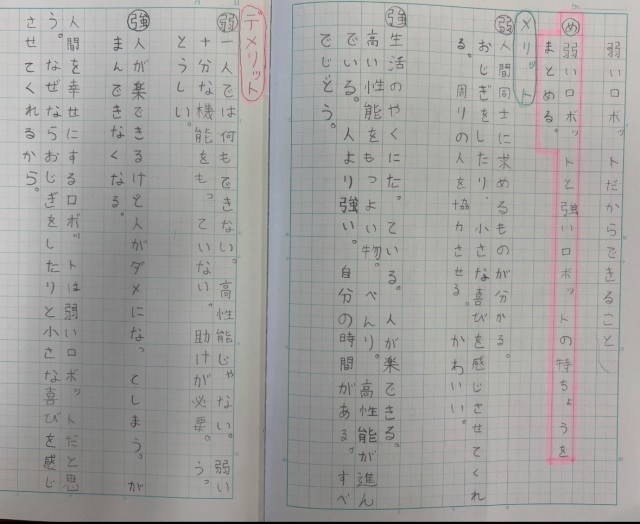 弱いロボットだからできること
め 弱いロボットと強いロボットの特ちょうを
まとめる。
メリット
弱 人間同士に求めるものが分かる。
おじぎをしたり、小さな喜びを感じさせてくれ
る。周りの人を協力させる。かわいい。
強 生活のやくにたっている。人が楽できる。
高い性能をもつよい物。べんり。高性能が進ん
でいる。人より強い。自分の時間がある。すべ
てじどう。
デメリット
弱 一人では何もできない。高性能じゃない。弱い
十分な機能をもっていない。助けが必要。う
とうしい。
強 人が楽できるけど人がダメになってしまう。が
まんできなくなる。
人間を幸せにするロボットは弱いロボットだと思
う。なぜならおじぎをしたりと小さな喜びを感じ
させてくれるから。